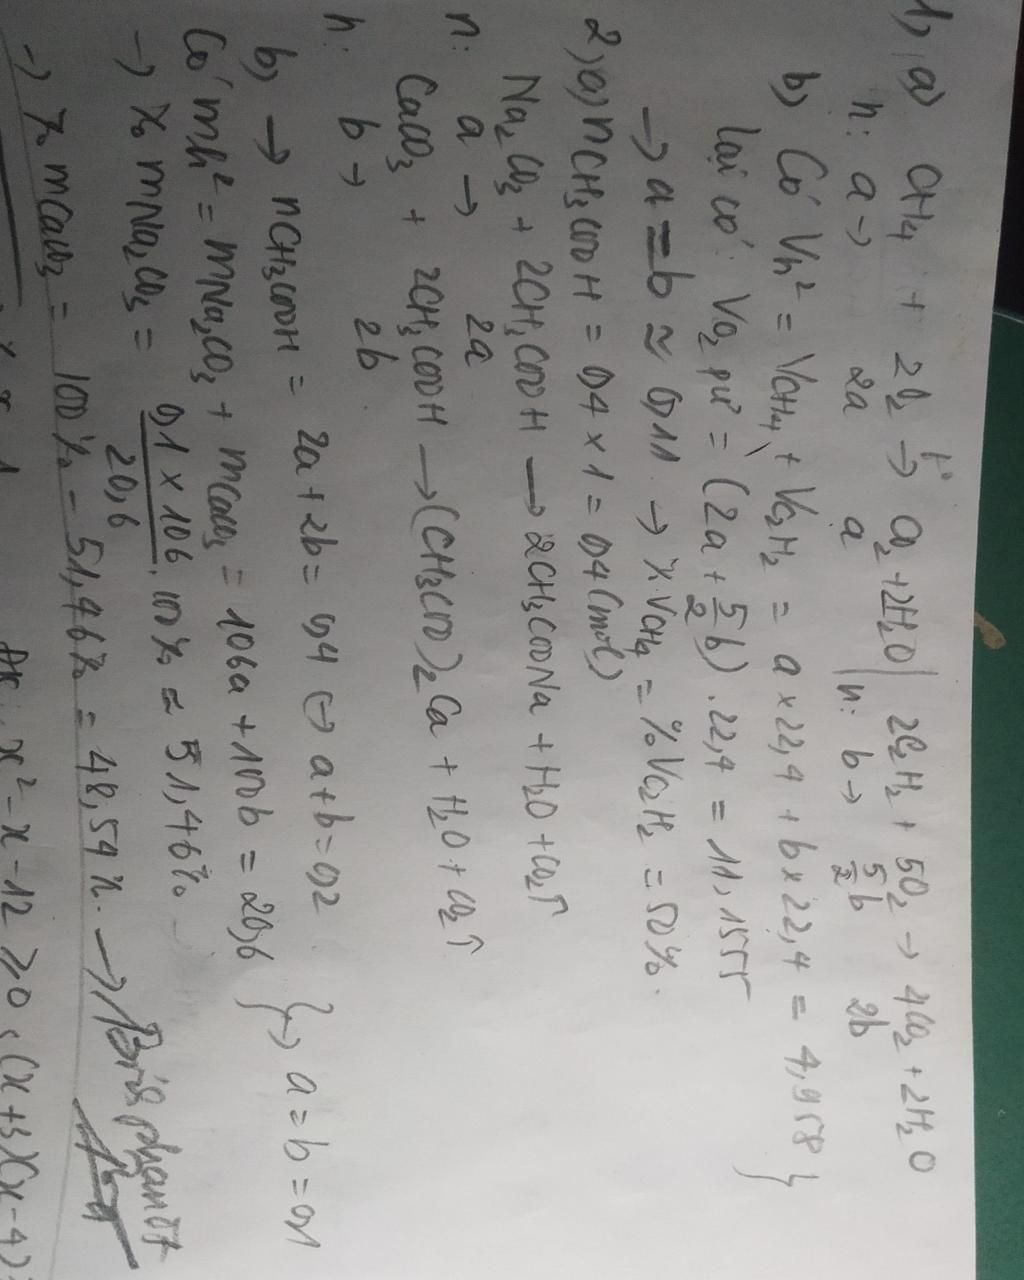 1) a) CH4 + 2O2 →t° CO2 + 2H2O | 2C2H2 + 5O2 → 4CO2 + 2H2O
n: a → 2a a | n: b → 5/2 b 2b
b) Có Vh² = VCH4 + VC2H2 = a × 22,4 + b × 22,4 = 4,958 }
lại có: VO2 pứ = (2a + 5/2 b) . 22,4 = 11,1555
→ a = b ≈ 0,11 → % VCH4 = % VC2H2 = 50%.
2) a) nCH3COOH = 0,4 × 1 = 0,4 (mol)
Na2CO3 + 2CH3COOH → 2CH3COONa + H2O + CO2↑
n: a → 2a
CaCO3 + 2CH3COOH → (CH3COO)2Ca + H2O + CO2↑
n: b → 2b
b) → nCH3COOH = 2a + 2b = 0,4 ↔ a + b = 0,2
Có mh² = mNa2CO3 + mCaCO3 = 106a + 100b = 20,6 } → a = b = 0,1
→ % mNa2CO3 = 0,1 × 106 / 20,6 . 100% ≈ 51,46%
→ % mCaCO3 = 100% - 51,46% = 48,54%.
x² - x - 12 ≥ 0 (x + 3)(x - 4)